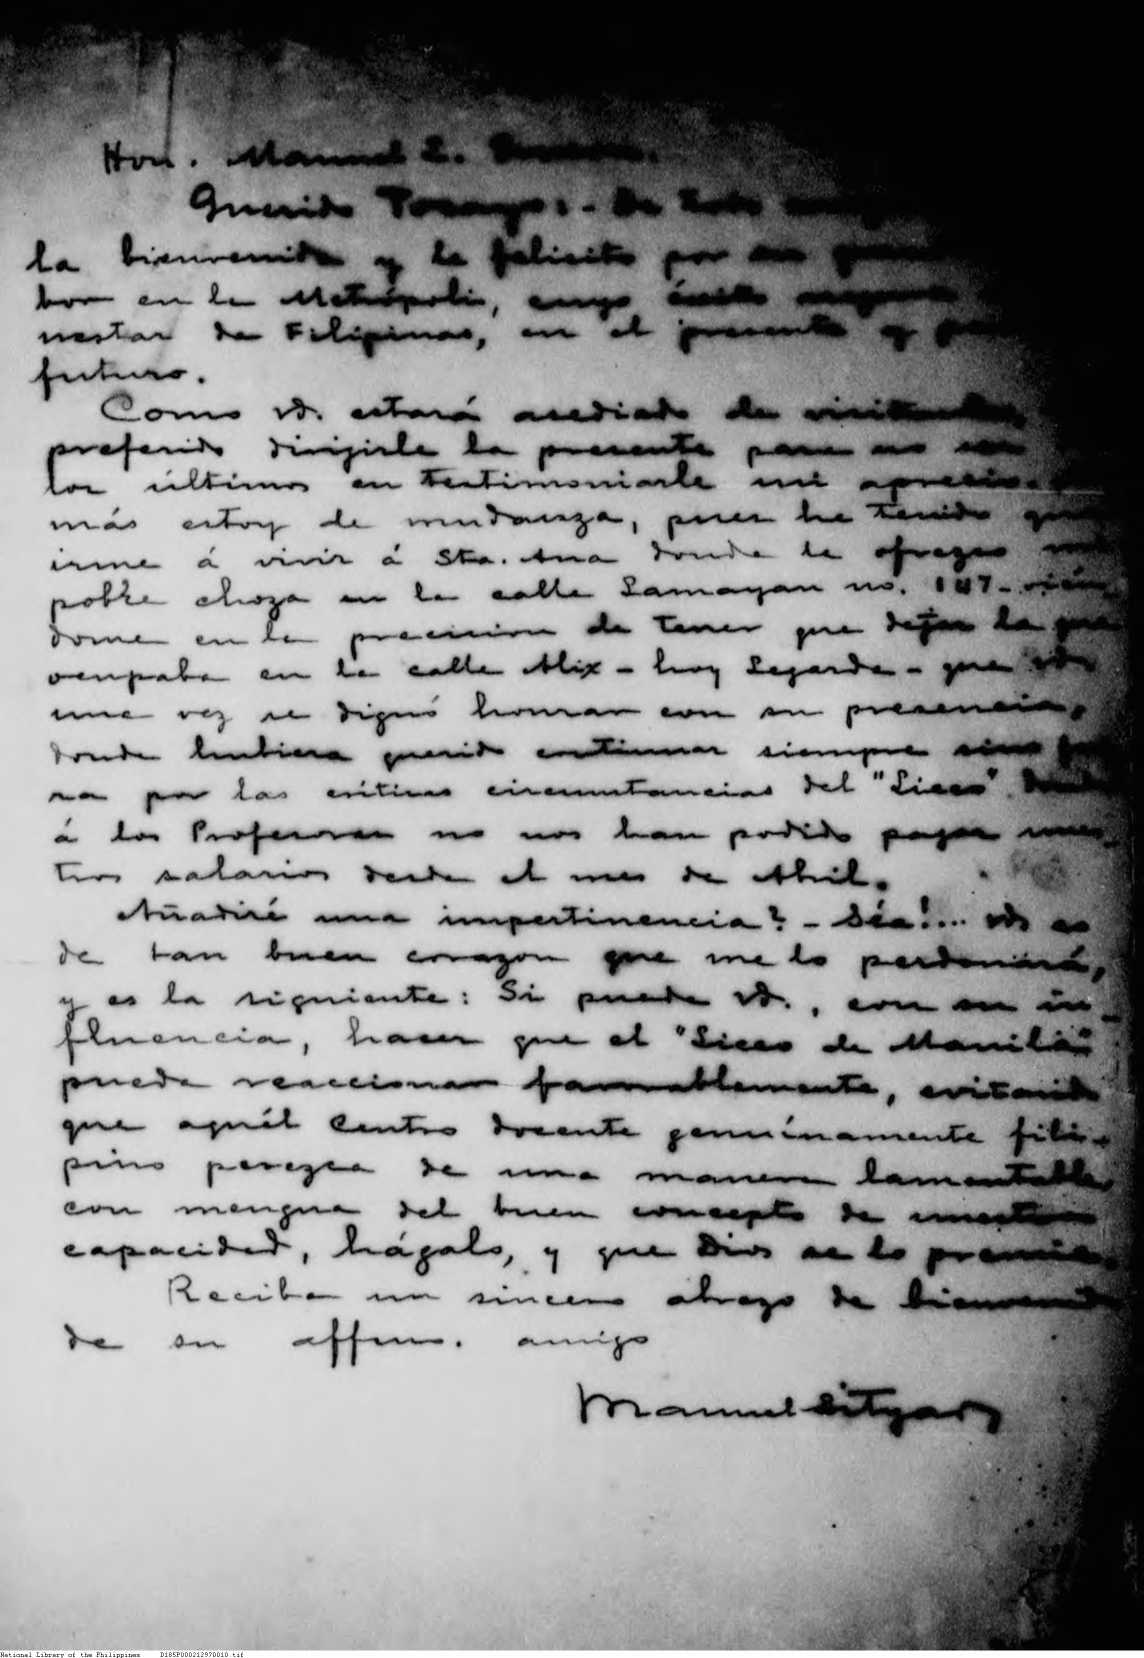 Hon. Manuel L. Quezon.
Querido Tocayo: - De todo
la bienvenida y le felicito por su
bor en la Metrópoli, cuyo éxito
nestar de Filipinas, en el presente y
futuro.
Como vd. estará asediado de visitantes,
preferido dirigirle la presente para no ser
los últimos en testimoniarle mi aprecio.
más estoy de mudanza, pues he tenido que
irme á vivir á Sta. Ana donde le ofrezco mi
pobre choza en la calle Lamayan no. 147 - vién
dome en la precision de tener que dejar la que
ocupaba en la calle Alix - hoy Legarda - que vd.
una vez se dignó honrar con su presencia,
donde hubiera querido continuar siempre sino fue
ra por las críticas circunstancias del "Liceo" donde
á los Profesores no nos han podido pagar nues
tros salarios desde el mes de Abril.
Añadiré una impertinencia? - Séa!... vd. es
de tan buen corazon que me lo perdonará,
y es la siguiente: Si puede vd., con su in_
fluencia, hacer que el "Liceo de Manila"
pueda reaccionar favorablemente, evitando
que aquél Centro docente genuínamente fili-
pino perezca de una manera lamentable,
con mengua del buen concepto de nuestra
capacidad, hágalo, y que Dios se lo premie.
Reciba un sincero abrazo de bienvenida
de su affmo. amigo
Manuel Sityar
National Library of the Philippines D185P000212970010.tif